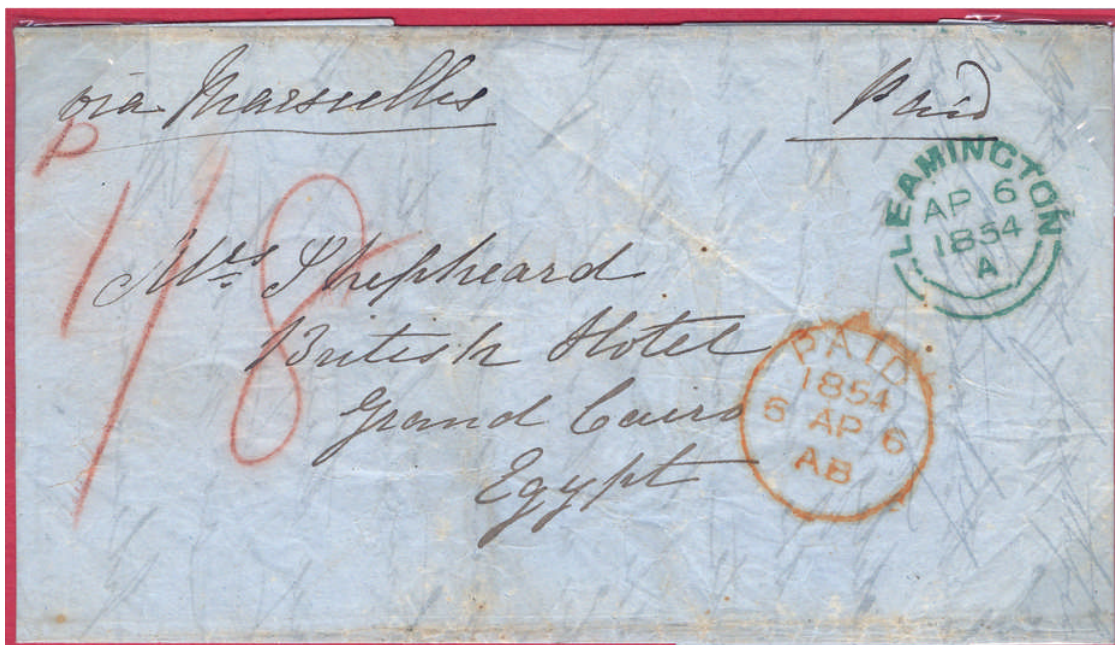 via Marsielles
Paid
P
1/8
LEAMINGTON
AP 6
1854
A
Mrs Shepheard
British Hotel
Grand Cairo
Egypt
PAID
1854
6 AP 6
AB